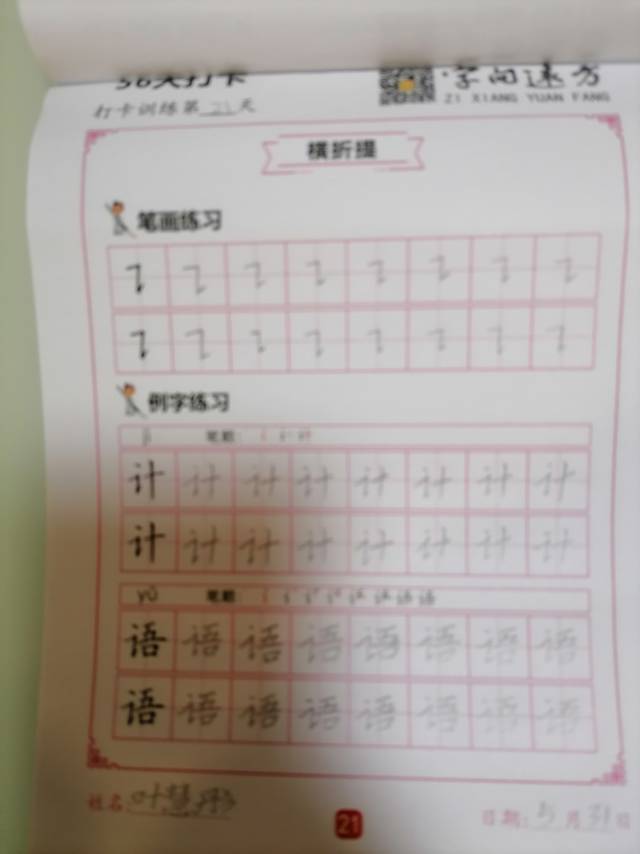 字向远方
ZI XIANG YUAN FANG
打卡训练第21天
横折提
笔画练习
例字练习
jì 笔顺:
计 计 计 计 计 计 计 计
计 计 计 计 计 计 计 计
yǔ 笔顺:
语 语 语 语 语 语 语 语
语 语 语 语 语 语 语 语
姓名:
21
日期: 5月31日